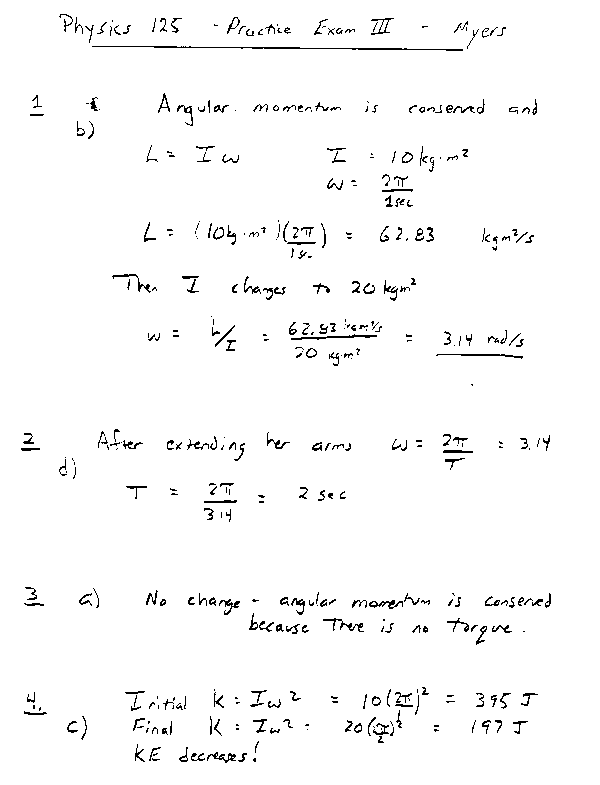 Physics 125 - Practice Exam III - Myers
1 b) Angular momentum is conserved and
L = Iω I = 10 kg·m²
ω = 2π / 1 sec
L = (10 kg·m²)(2π / 1 s.) = 62.83 kgm²/s
Then I changes to 20 kgm²
ω = L/I = 62.83 kgm²/s / 20 kg·m² = 3.14 rad/s
2 d) After extending her arms ω = 2π / T = 3.14
T = 2π / 3.14 = 2 sec
3 a) No change - angular momentum is conserved
because There is no torque.
4. c) Initial K = Iω² = 10(2π)² = 395 J
Final K = Iω² = 20 = 197 J
KE decreases!